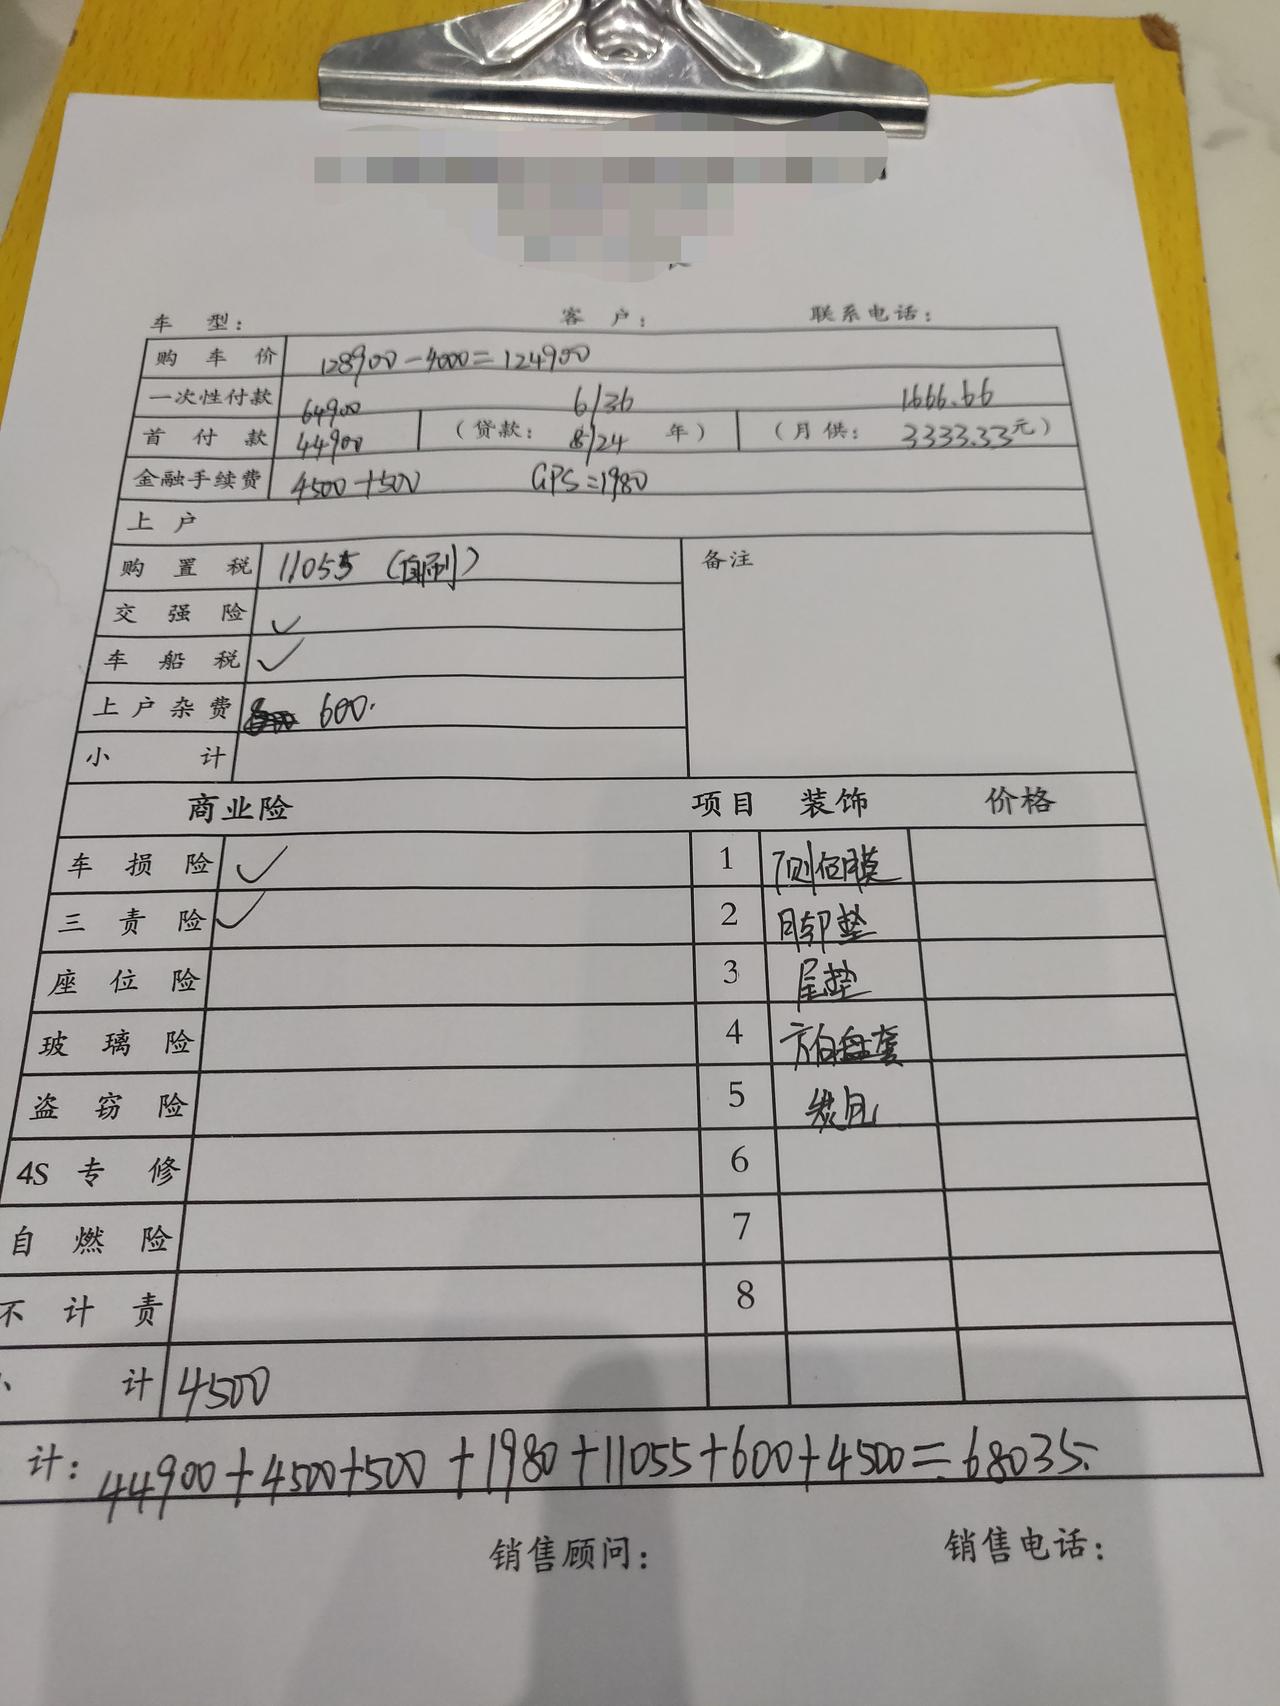 车 型： 客 户： 联系电话：
购 车 价 128900-4000=124900
一次性付款 64900 6/36 1666.66
首 付 款 44900 （贷款： 8/24 年） （月供： 3333.33元）
金融手续费 4500+500 GPS=1980
上 户
购 置 税 11055 （自刷） 备注
交 强 险 ✓
车 船 税 ✓
上 户 杂 费 600.
小 计
商业险 项目 装饰 价格
车 损 险 ✓ 1
三 责 险 ✓ 2 脚垫
座 位 险 3 尾垫
玻 璃 险 4 方向盘套
盗 窃 险 5
4S 专 修 6
自 燃 险 7
不 计 责 8
计 4500
计： 44900+4500+500+1980+11055+600+4500=68035.
销售顾问： 销售电话：